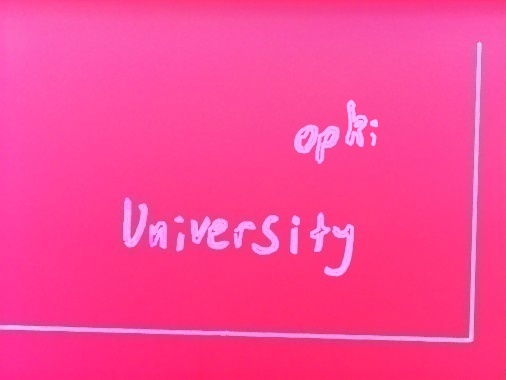 opki
University